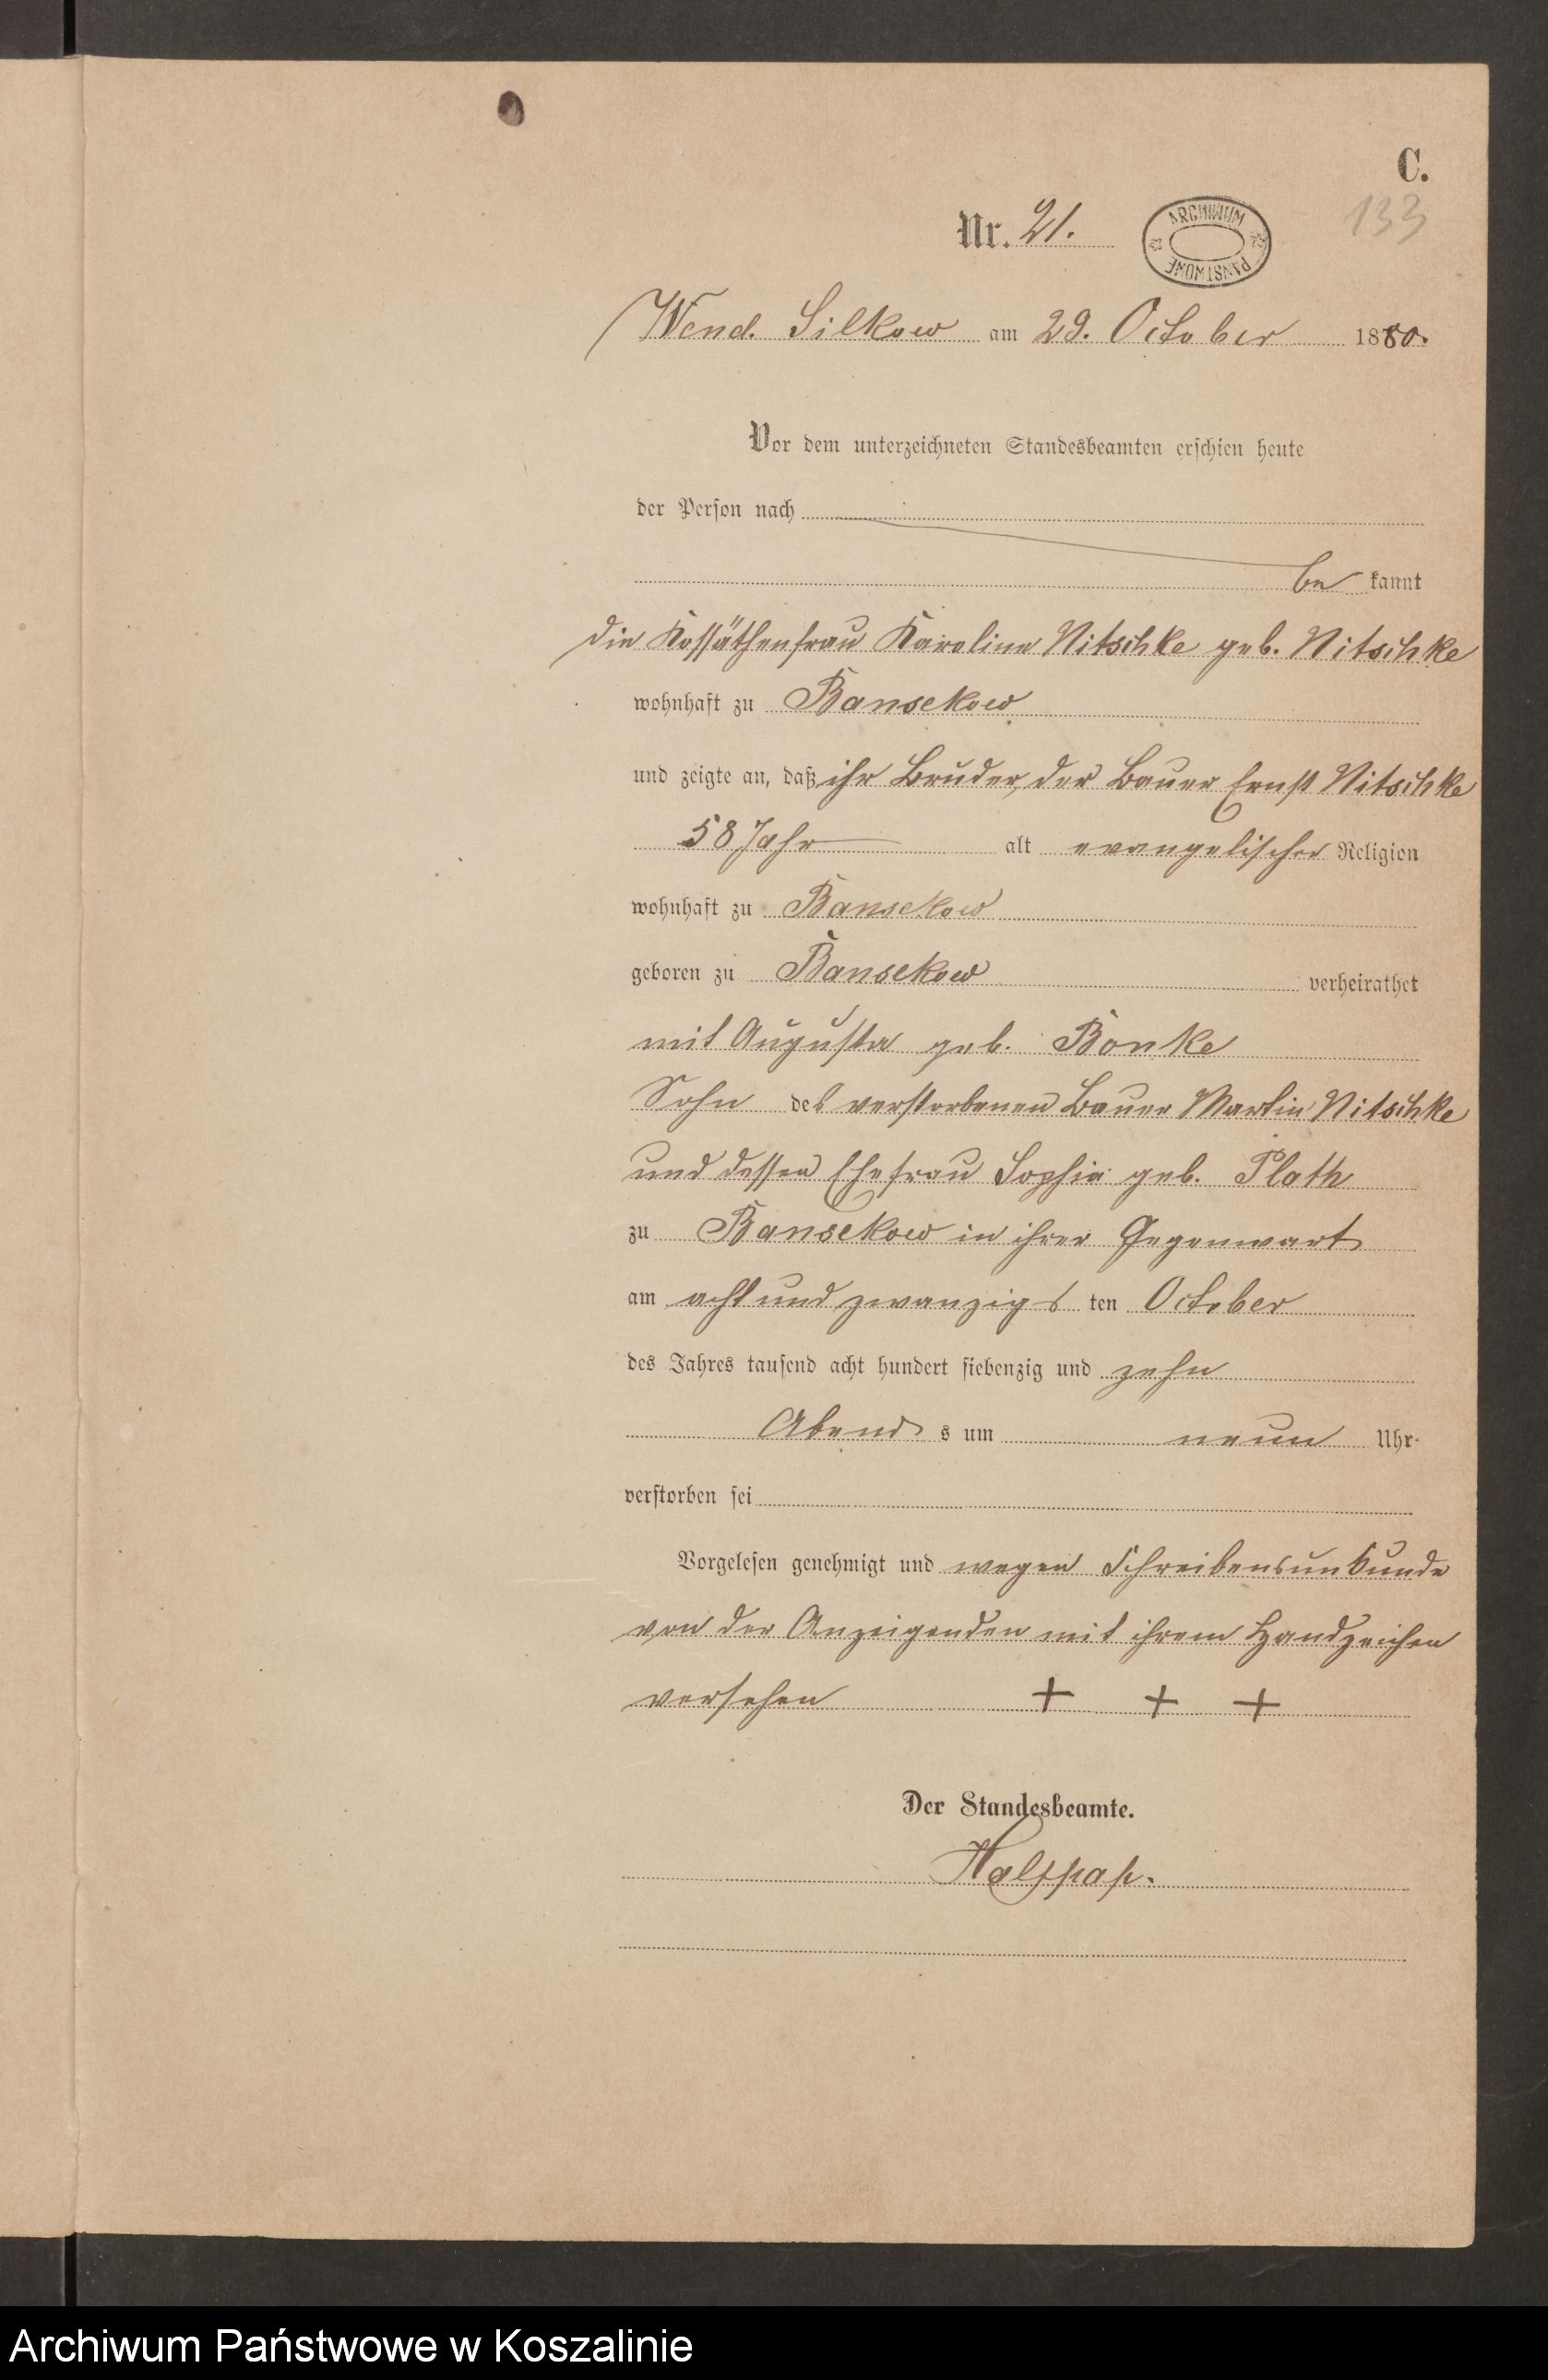 C.
Nr. 21.
ARCHIWUM
PAŃSTWOWE
133
Wend. Silkow am 29. October 1880.
Vor dem unterzeichneten Standesbeamten erschien heute
der Person nach
be kannt
die Kossäthenfrau Karoline Nitschke geb. Nitschke
wohnhaft zu Bansekow
und zeigte an, daß ihr Bruder, der Bauer Ernst Nitschke
58 Jahr alt evangelischer Religion
wohnhaft zu Bansekow
geboren zu Bansekow verheirathet
mit Auguste geb. Bonke
Sohn des verstorbenen Bauer Martin Nitschke
und dessen Ehefrau Sophie geb. Plath
zu Bansekow in ihrer Gegenwart
am acht und zwanzigs ten October
des Jahres tausend acht hundert siebenzig und zehn
Abend s um neun Uhr
verstorben sei
Vorgelesen genehmigt und wegen Schreibensunkunde
von der Anzeigenden mit ihrem Handzeichen
versehen + + +
Der Standesbeamte.
Archiwum Państwowe w Koszalinie